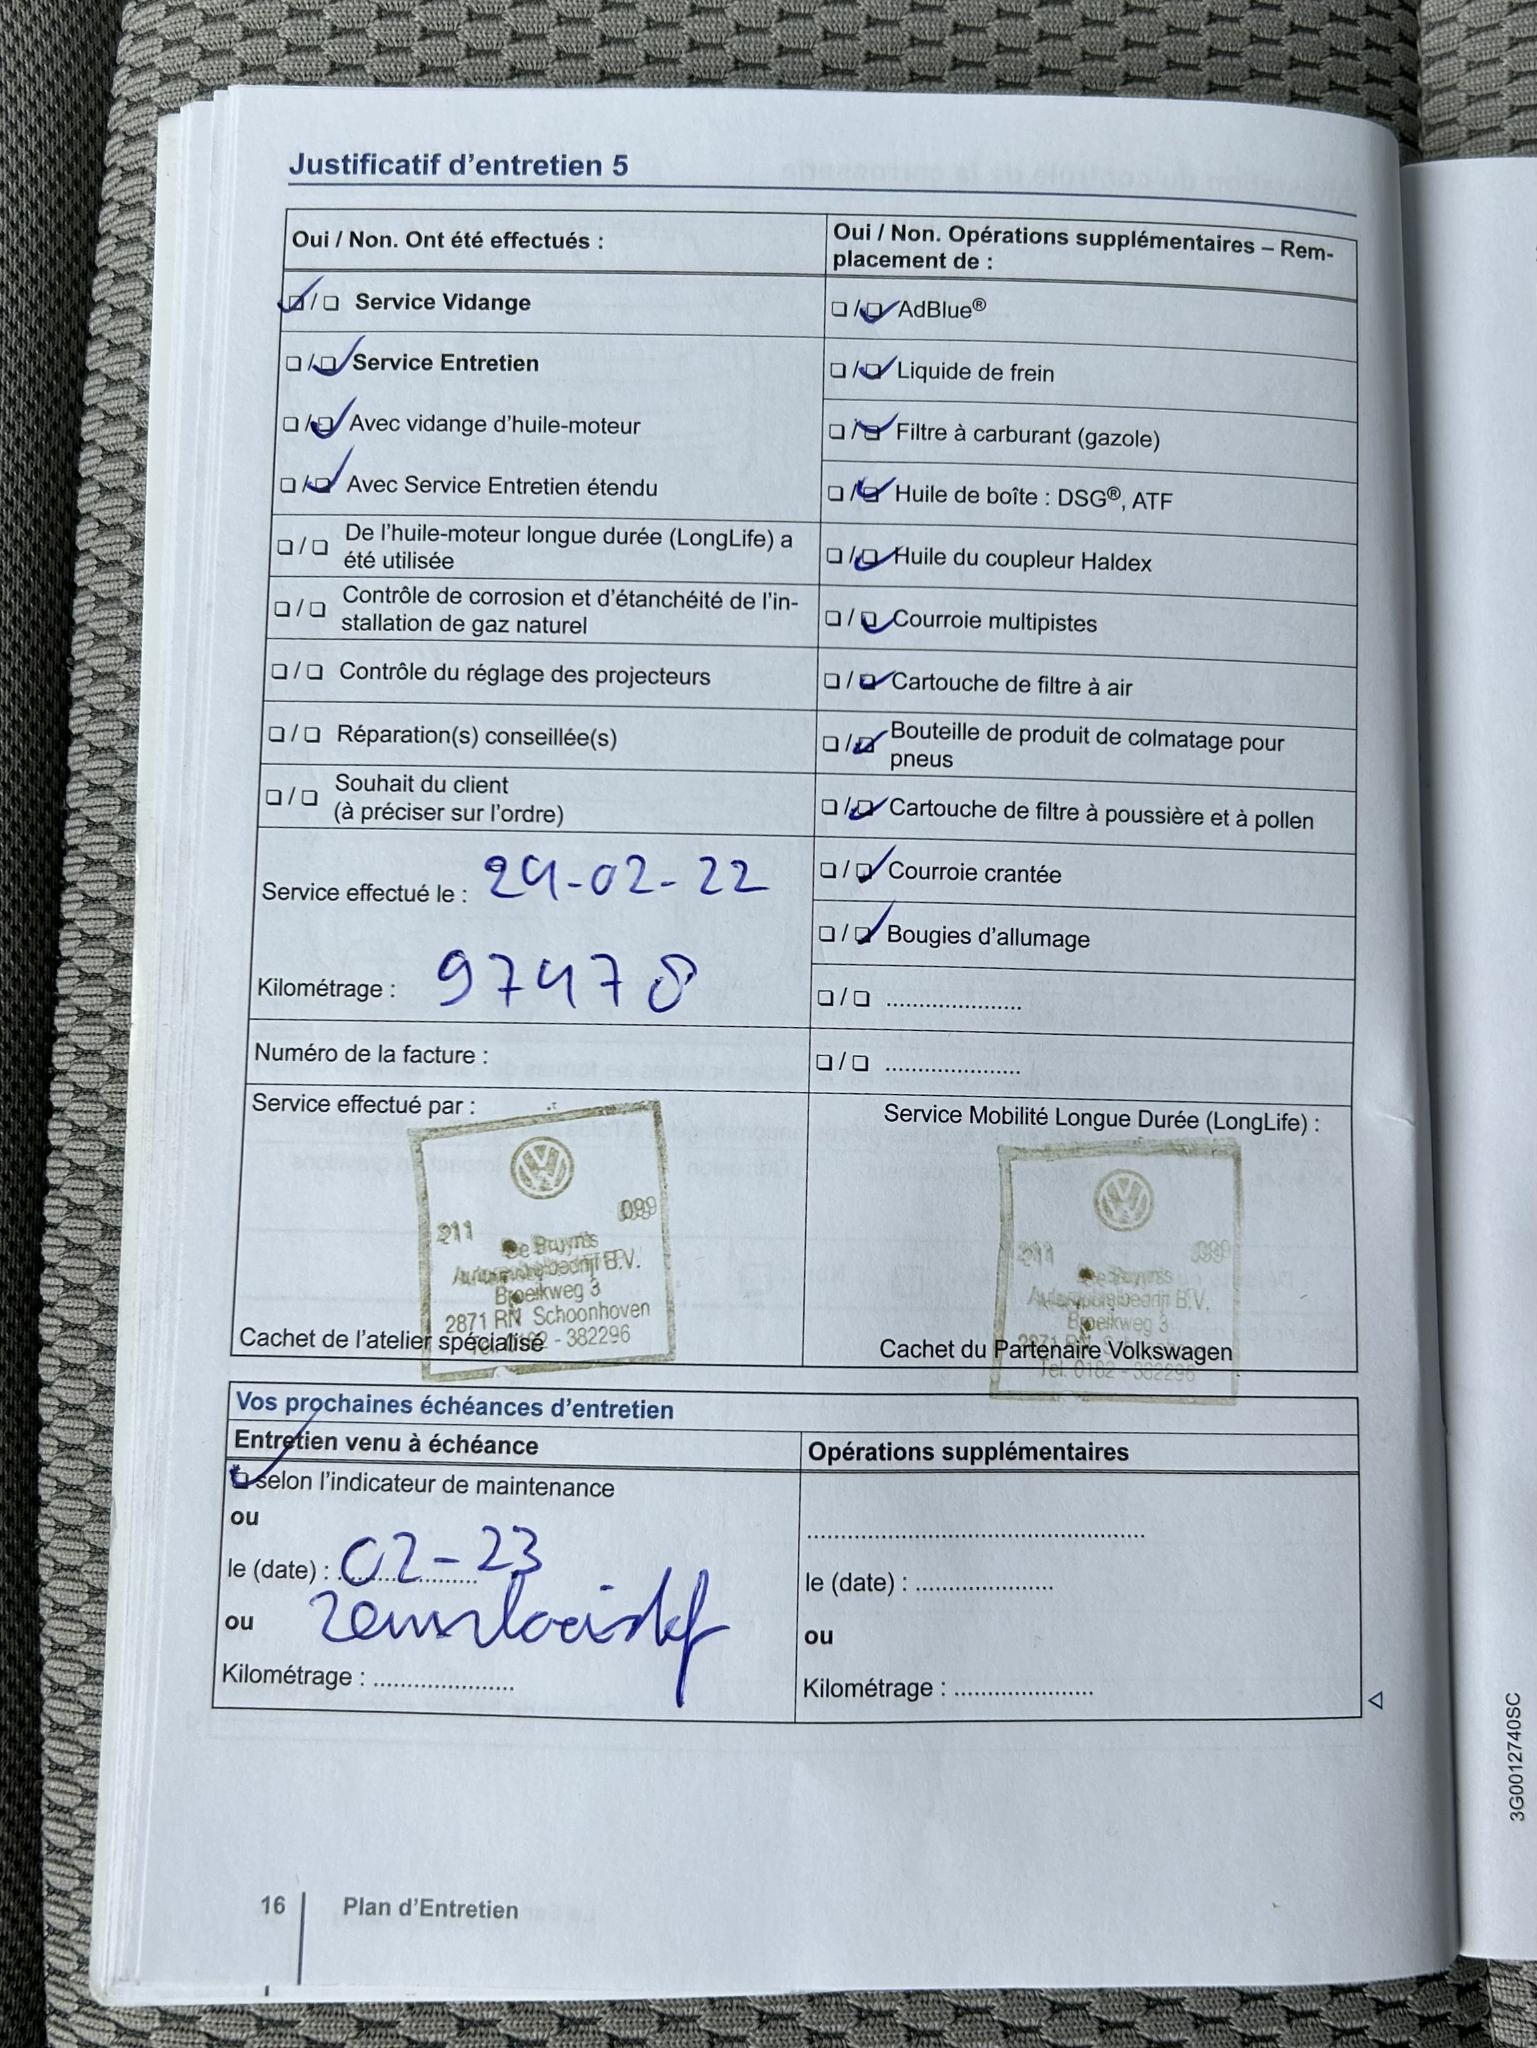 Justificatif d'entretien 5
Oui / Non. Ont été effectués :
❏ / ❏ Service Vidange
❏ / ❏ Service Entretien
❏ / ❏ Avec vidange d'huile-moteur
❏ / ❏ Avec Service Entretien étendu
❏ / ❏ De l'huile-moteur longue durée (LongLife) a
été utilisée
❏ / ❏ Contrôle de corrosion et d'étanchéité de l'in-
stallation de gaz naturel
❏ / ❏ Contrôle du réglage des projecteurs
❏ / ❏ Réparation(s) conseillée(s)
❏ / ❏ Souhait du client
(à préciser sur l'ordre)
Service effectué le : 24-02-22
Kilométrage : 97478
Numéro de la facture :
Oui / Non. Opérations supplémentaires – Rem-
placement de :
❏ / ❏ AdBlue®
❏ / ❏ Liquide de frein
❏ / ❏ Filtre à carburant (gazole)
❏ / ❏ Huile de boîte : DSG®, ATF
❏ / ❏ Huile du coupleur Haldex
❏ / ❏ Courroie multipistes
❏ / ❏ Cartouche de filtre à air
❏ / ❏ Bouteille de produit de colmatage pour
pneus
❏ / ❏ Cartouche de filtre à poussière et à pollen
❏ / ❏ Courroie crantée
❏ / ❏ Bougies d'allumage
❏ / ❏ ....................
❏ / ❏ ....................
Service effectué par :
211 099
De Bruyn's
Automobielbedrijf B.V.
Broeikweg 3
2871 RN Schoonhoven
Tel. 0182 - 382296
Cachet de l'atelier spécialisé
Service Mobilité Longue Durée (LongLife) :
211 099
De Bruyn's
Automobielbedrijf B.V.
Broeikweg 3
2871 RN
Tel. 0182 - 382296
Cachet du Partenaire Volkswagen
Vos prochaines échéances d'entretien
Entretien venu à échéance
❏ selon l'indicateur de maintenance
ou
le (date) : 02-23
ou
Kilométrage : .....................
Opérations supplémentaires
..................................................
le (date) : .....................
ou
Kilométrage : .....................
16 Plan d'Entretien
3G0012740SC